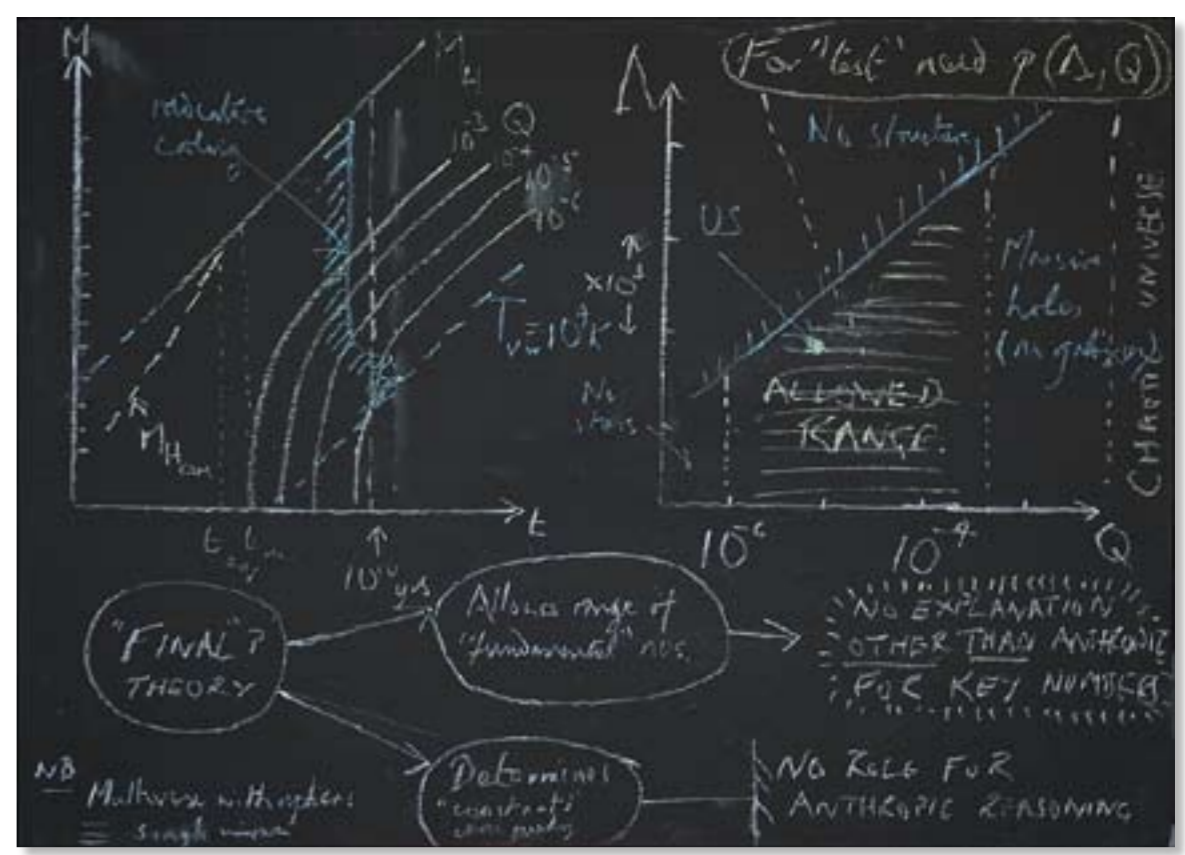 M
M
radiative
cooling
10⁻³
Q
10⁻⁴
10⁻⁵
10⁻⁶
T
=10⁴K
M
H
t
t
10¹⁰ yrs
For "test" need p(Λ,Q)
Λ
No structure
US
×10³
No
stars
ALLOWED
RANGE.
Massive
holes
CHAOTIC UNIVERSE
10⁻⁶
10⁻⁴
Q
"FINAL"?
THEORY
Allows range of
"fundamental" nos.
NO EXPLANATION
OTHER THAN ANTHROPIC
FOR KEY NUMBERS
Determines
"constants"
NO ROLE FOR
ANTHROPIC REASONING
NB
Multiverse
≡ single